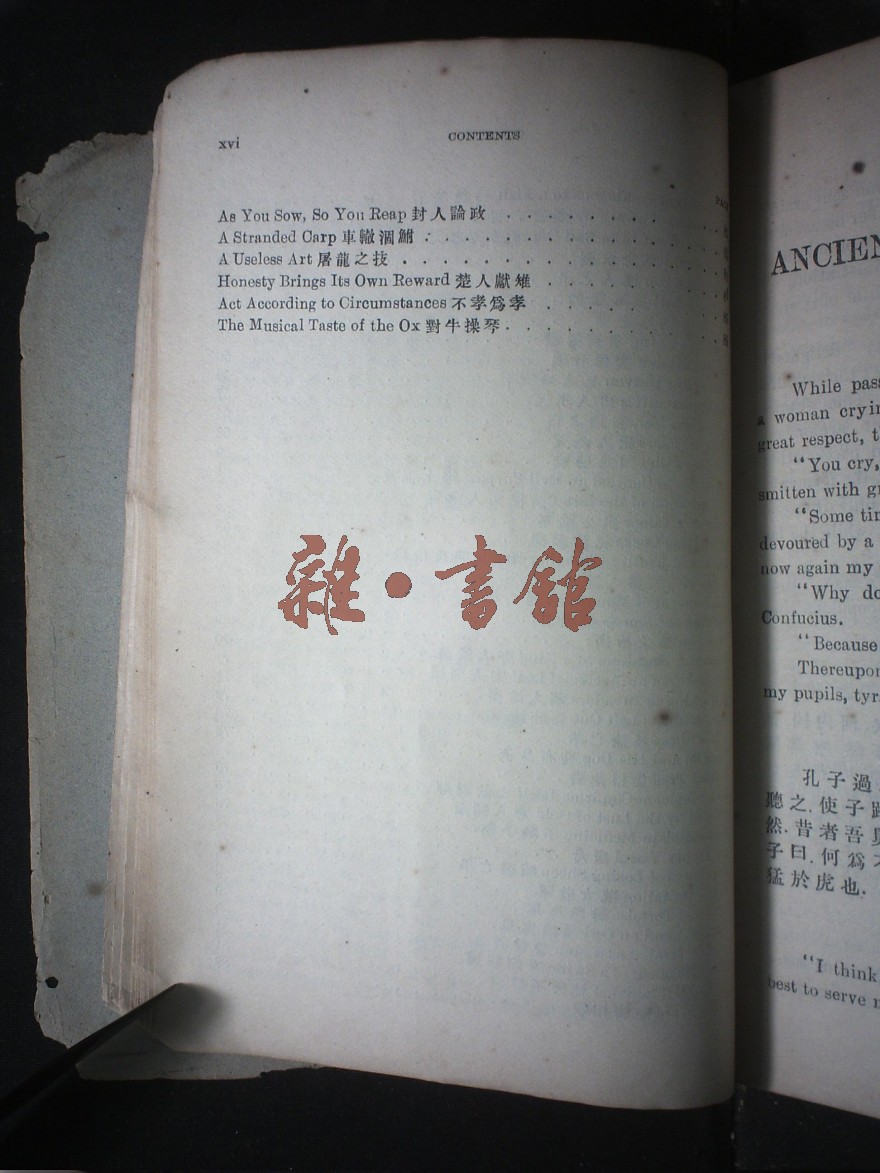 xvi
CONTENTS
As You Sow, So You Reap 封人論政
A Stranded Carp 車轍涸鮒
A Useless Art 屠龍之技
Honesty Brings Its Own Reward 楚人獻雉
Act According to Circumstances 不孝爲孝
The Musical Taste of the Ox 對牛操琴
雜·書館
ANCIEN
While pass
a woman cryin
great respect, t
"You cry,
smitten with gr
"Some tim
devoured by a
now again my
"Why do
Confucius.
"Because
Thereupon
my pupils, tyr
孔子過
聽之.使子路
然.昔者吾
子曰.何爲不
猛於虎也.
"I think
best to serve